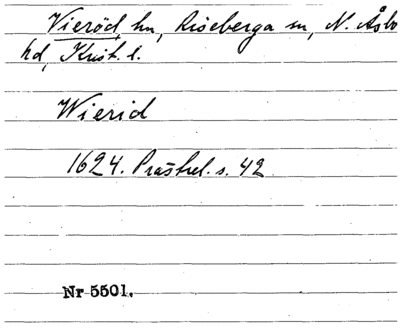 Vieröd, hn, Riseberga sn, N. Åsbo
hd, Krist. l.
Wierid
1624. Prästrel. s. 42
Nr 5501.